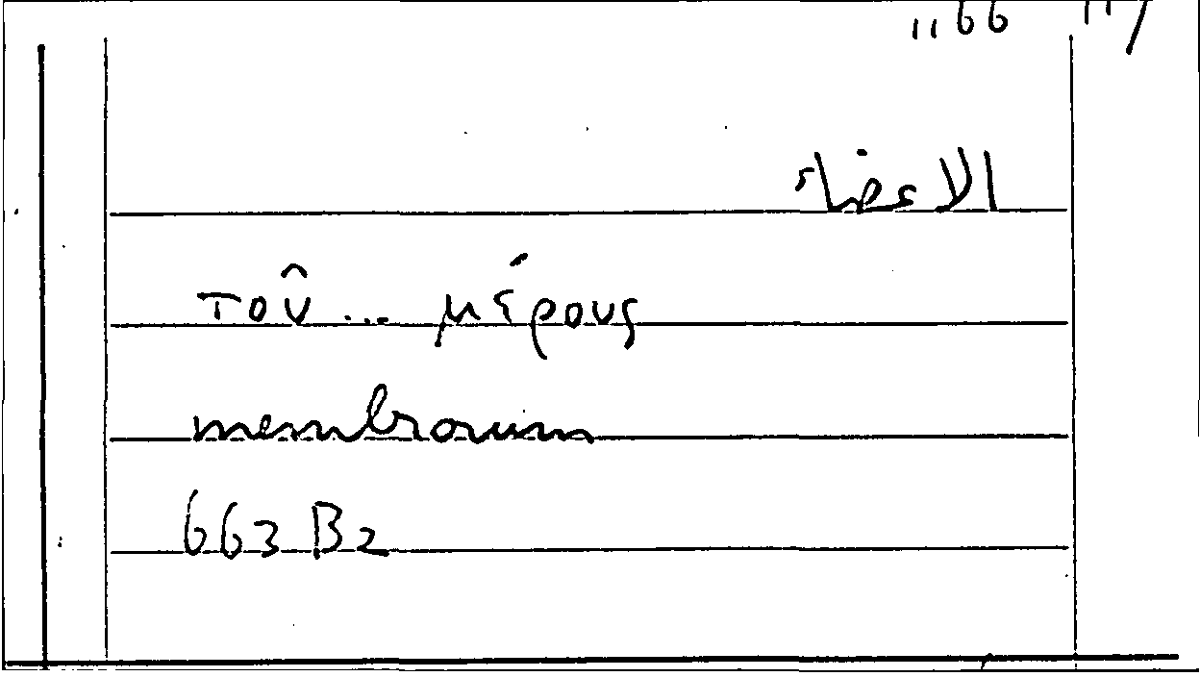 الاعضاء
τοῦ ... μέρους
membrorum
663 B2